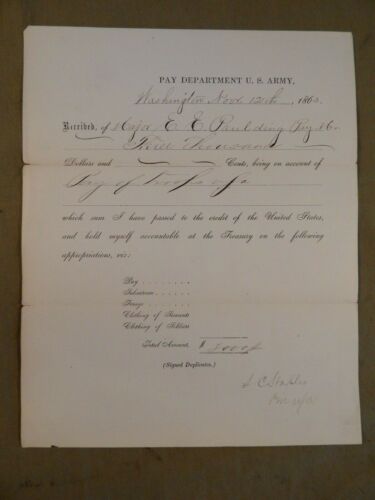 PAY DEPARTMENT U. S. ARMY,
Washington Nov 12th, 186
Received, of Major E E Paulding Pay Mr
Three Thousand
Dollars and Cents, being on account of
Pay of Troops &c
which sum I have passed to the credit of the United States,
and hold myself accountable at the Treasury on the following
appropriations, viz:
Pay
Subsistence
Forage
Clothing of Servants
Clothing of Soldiers
Total Amount, $ 3000
(Signed Duplicates.)
C Staples